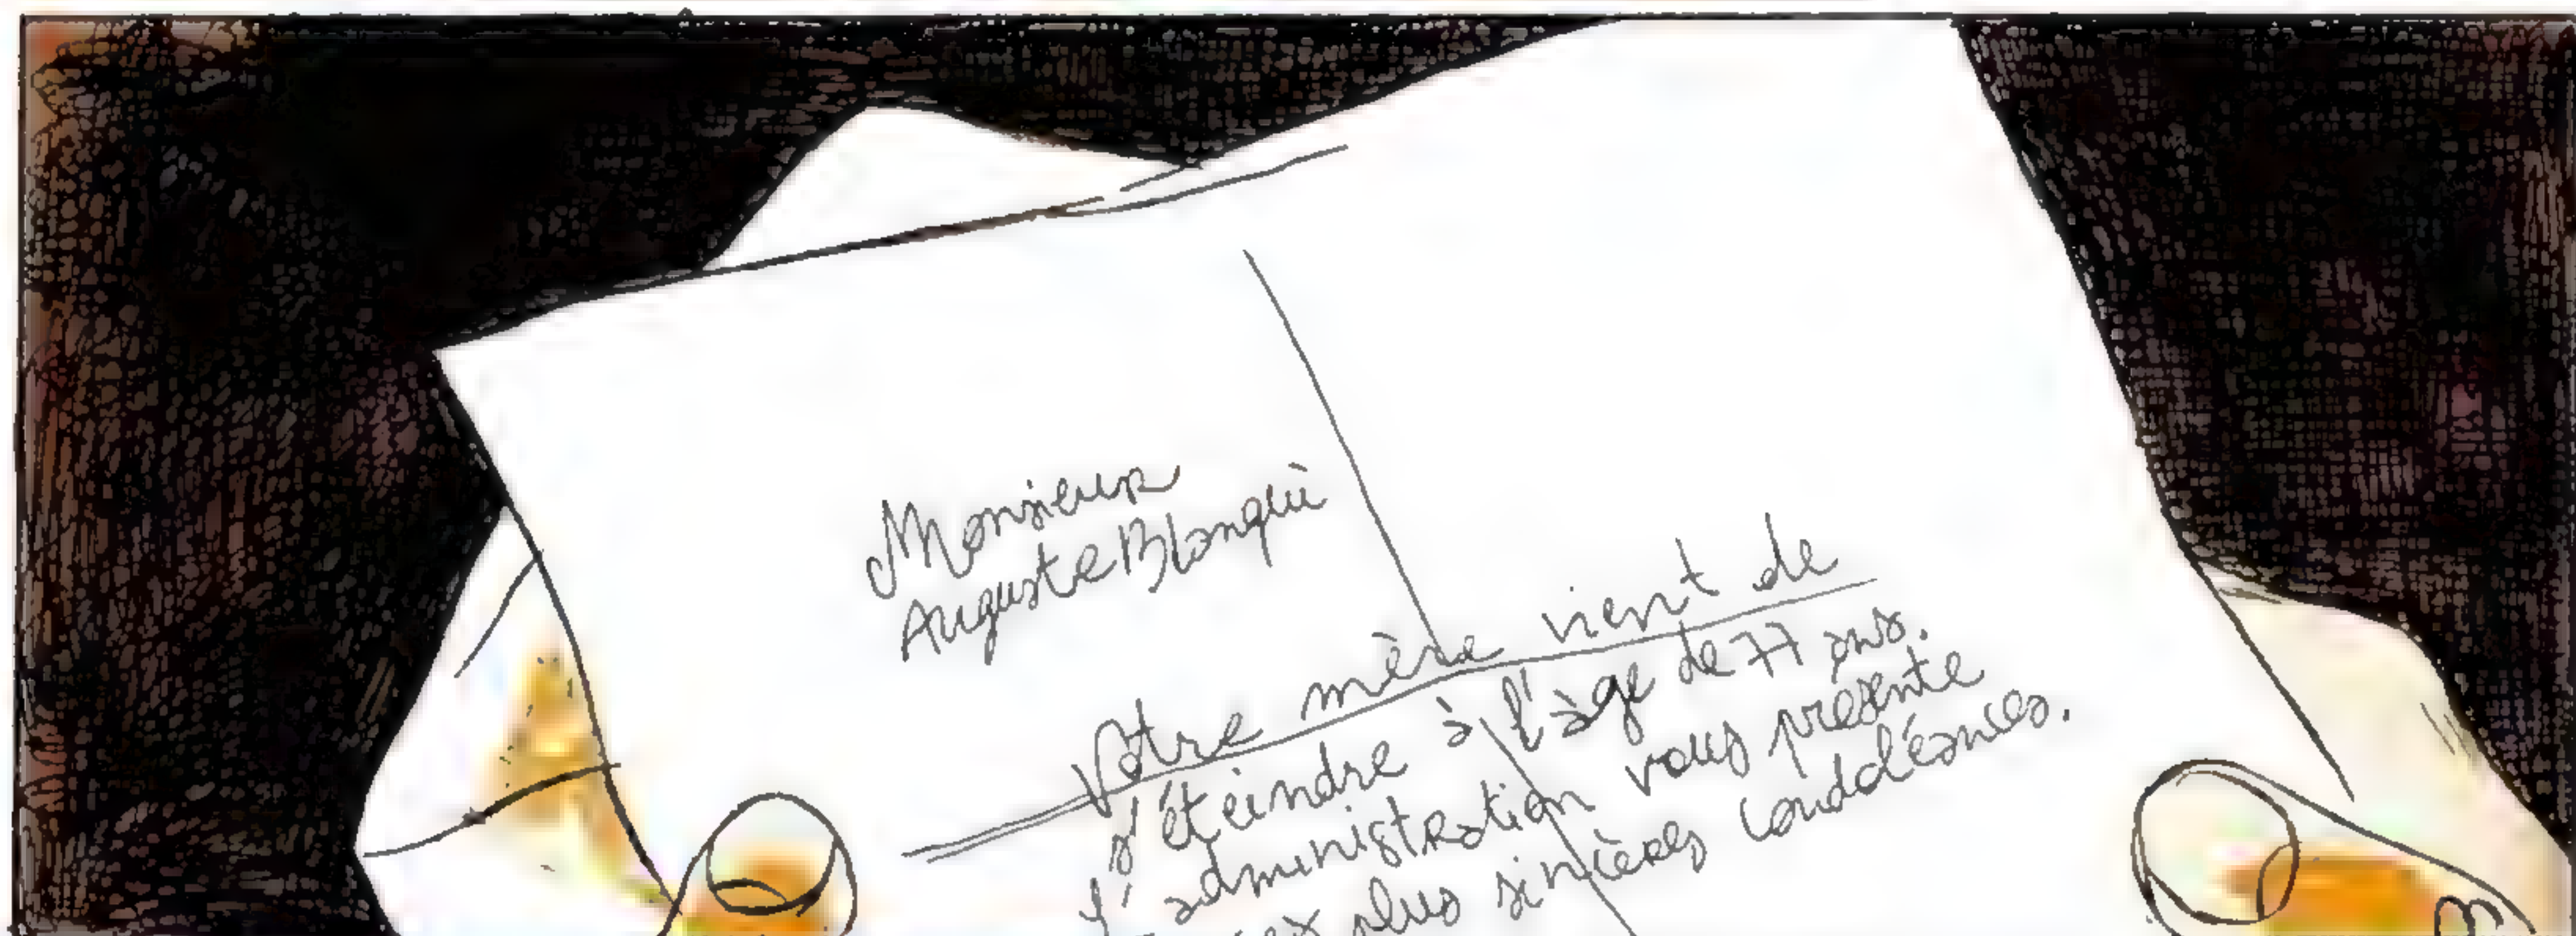 Monsieur
Auguste Blanqui
Votre mère vient de
s'éteindre à l'âge de 77 ans.
L'administration vous présente
plus sincères condoléances.